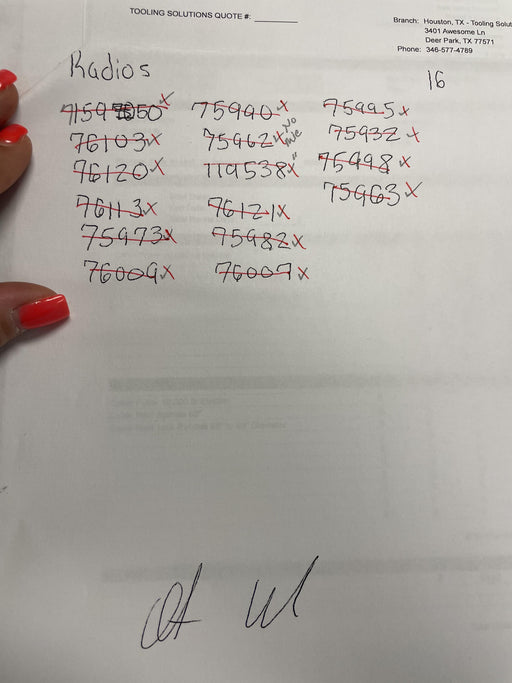 TOOLING SOLUTIONS QUOTE #:
Branch: Houston, TX - Tooling Solut
3401 Awesome Ln
Deer Park, TX 77571
Phone: 346-577-4789
Radios
16
75990 x 75995 x
76103 x 75962 x No 75932 x
76120 x 119538 x " 75998 x
75963 x
76113 x 76121 x
75973 x 75982 x
76009 x 76007 x